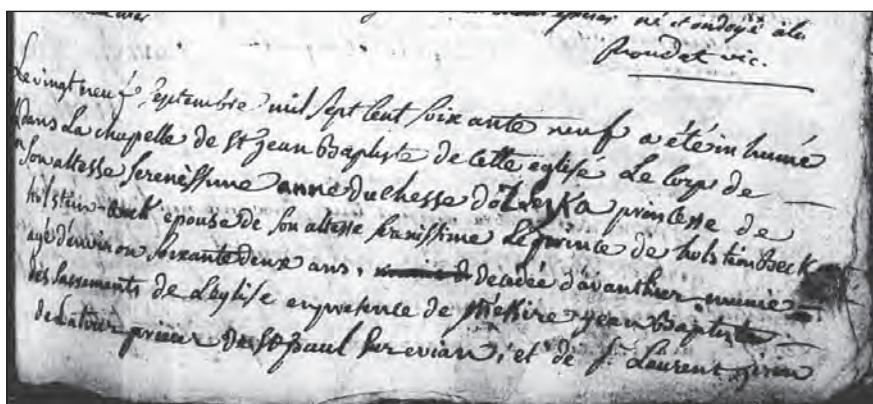 né et ondoyé à la
Le vingt neuf septembre mil sept cent soixante neuf a été inhumé
dans la chapelle de st jean Baptiste de cette eglise Le corps de
son altesse serenissime anne duchesse d'olzeska princesse de
holstein-Beck epouse de son altesse serenissime Le prince de holstein Beck
agé d'environ soixante deux ans, decedée d'avanthier munie
des sacrements de L'eglise en presence de Messire jean Baptiste
prieur de st paul et de sr Laurent